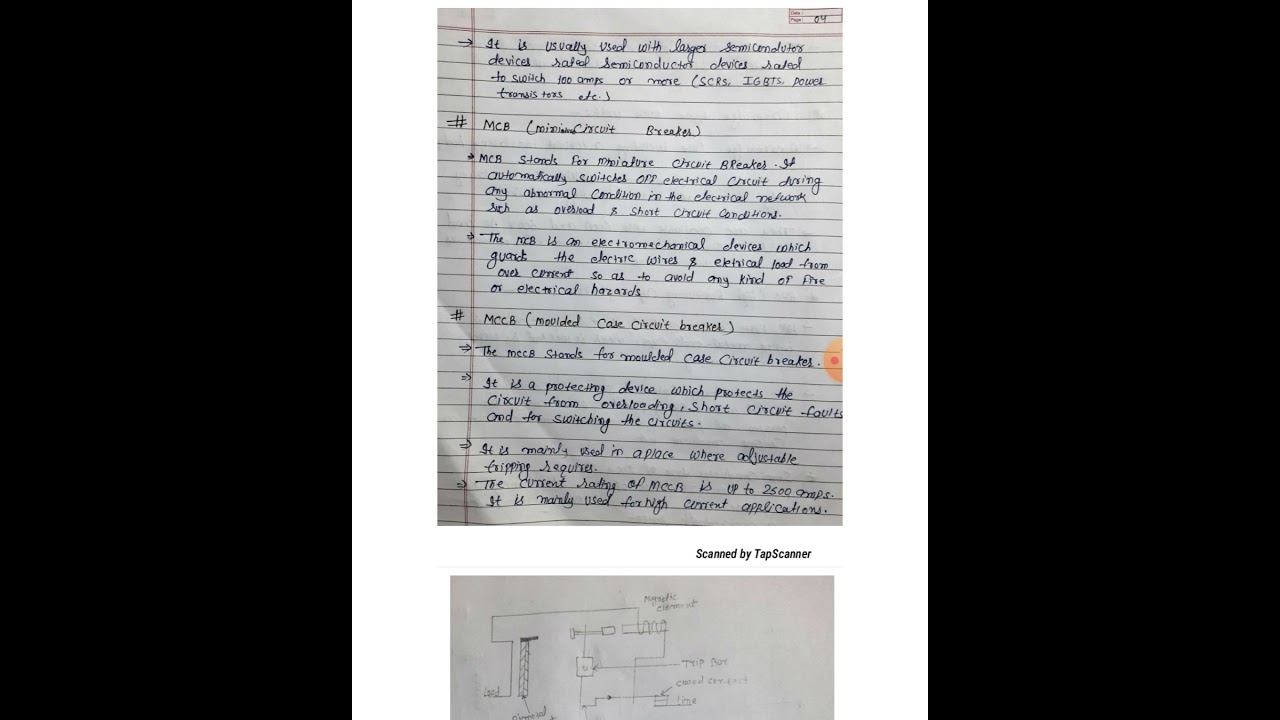 Date :
Page : 04
→ It is usually used with larger semicondutor
devices rated semiconductor devices rated
to switch 100 amps or more (SCRs, IGBTS, power
transistors etc.)
# MCB ( Circuit Breaker)
→ MCB stands for Miniature Circuit Breaker. It
automatically switches OFF electrical circuit during
any abnormal condition in the electrical network
such as overload & short circuit conditions.
→ The MCB is an electromechanical devices which
guards the electric wires & eletrical load from
over current so as to avoid any kind of fire
or electrical hazards
# MCCB (moulded case circuit breaker)
⇒ The MCCB stands for moulded case circuit breaker.
⇒ It is a protecting device which protects the
circuit from overloading, short circuit faults
and for switching the circuits.
⇒ It is mainly used in a place where adjustable
tripping requires.
⇒ The current rating of MCCB is up to 2500 amps.
It is mainly used for high current applications.
Scanned by TapScanner
Magnetic
element
Trip Bar
closed contact
Line
Load